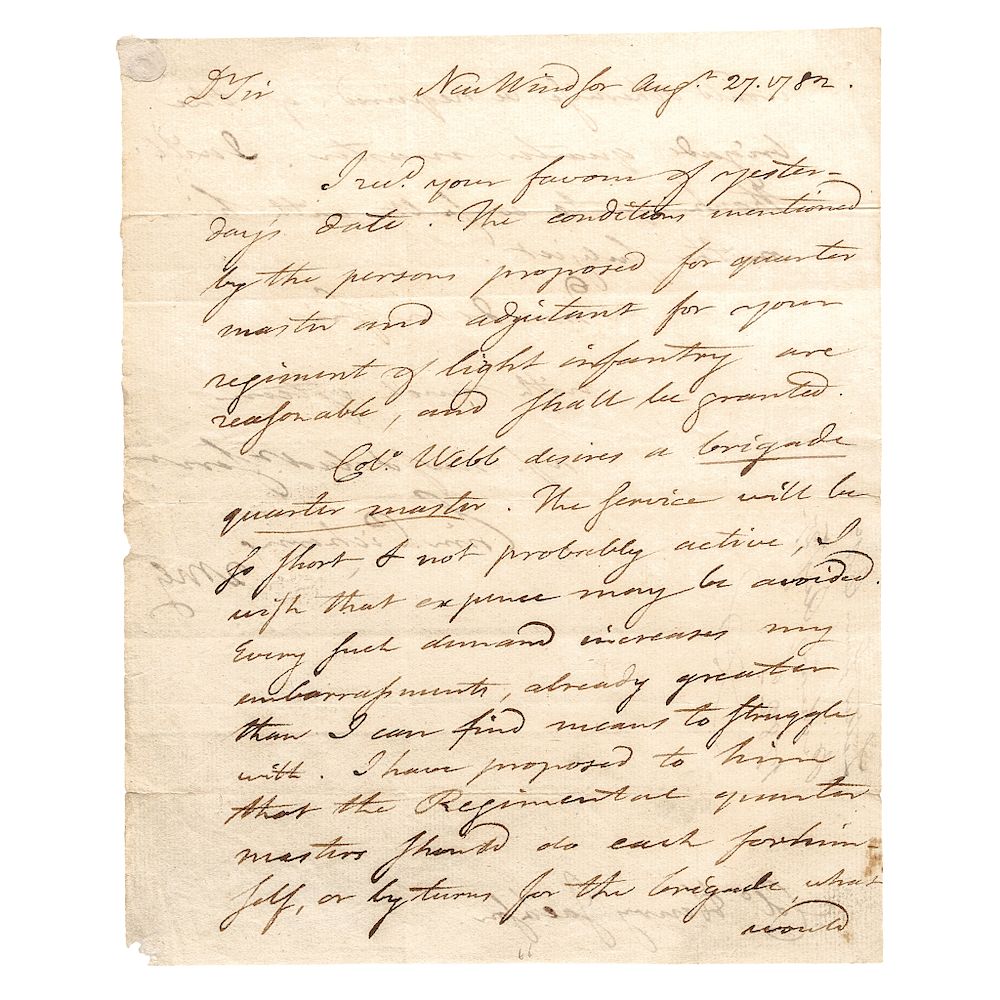 Dr Sir New Windsor Augt. 27. 1782.
I recd. your favour of yester-
day's date. The conditions mentioned
by the persons proposed for quarter
master and adjutant for your
regiment of light infantry are
reasonable, and shall be granted.
Colo. Webb desires a brigade
quarter master. The service will be
so short, & not probably active, I
wish that expence may be avoided.
Every such demand increases my
embarrassments, already greater
than I can find means to struggle
with. I have proposed to him
that the Regimental quarter
masters should do each for him-
self, or by turns for the brigade, what
would